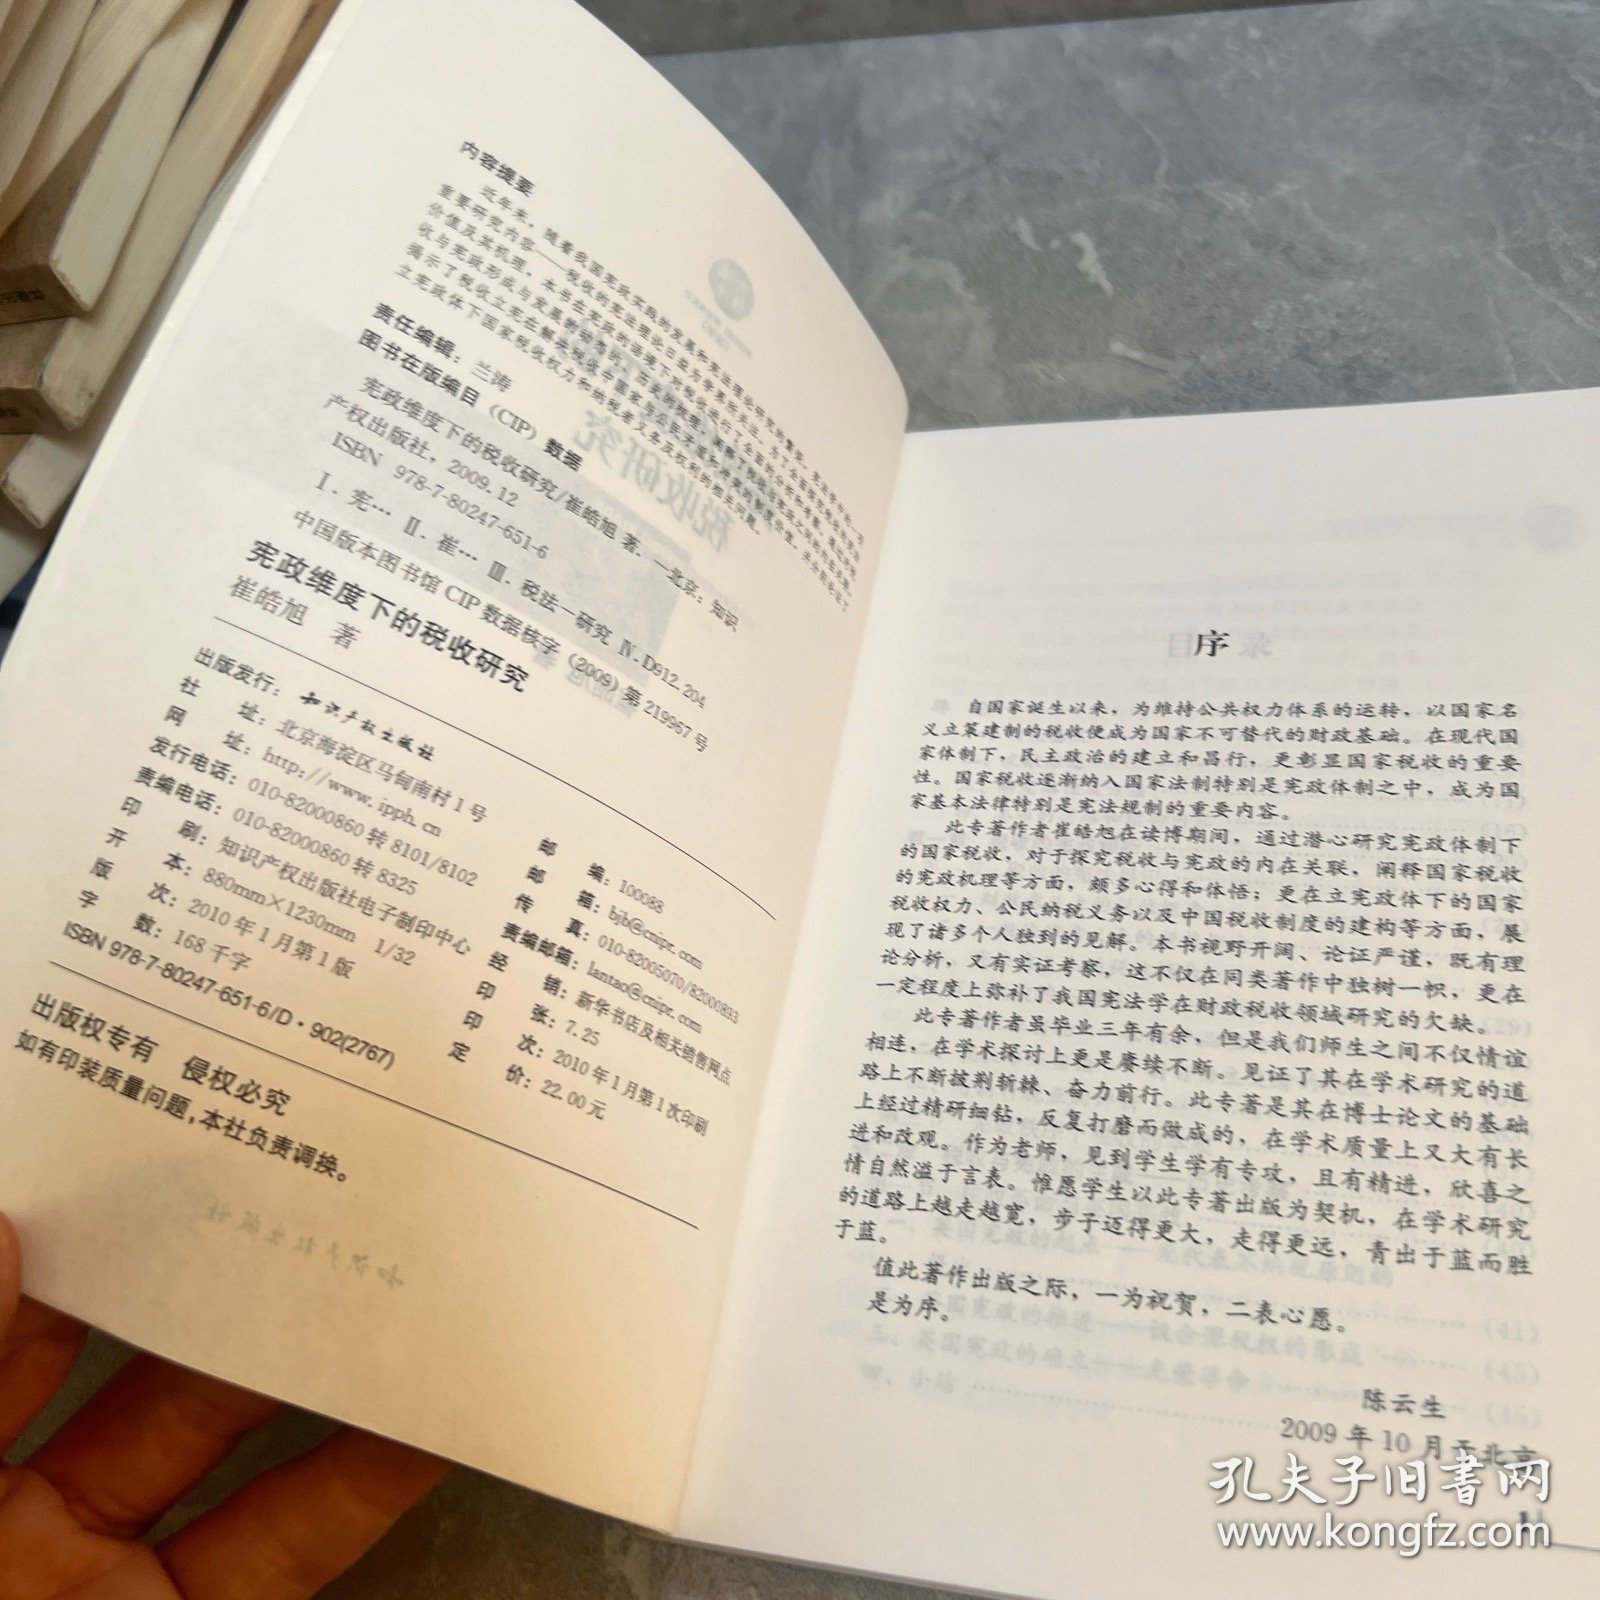 内容提要
近年来，随着我国宪政实践的发展和宪法理论研究的繁荣，宪法学的一
重要研究内容——税收的宪法理论日益为学界所关注。为了全面
价值及其机理，本书在宪政的语境下对税收进行了全面的分析和考察，
收与宪政形成与发展的历史的梳理，阐释了税收与宪政之间的
揭示了税收立宪在解决税收中国家与公民矛盾和冲突的制度价值，并分别论述了
立宪政体下国家税收权力和纳税者义务及权利的相关问题。
责任编辑：兰涛
图书在版编目（CIP）数据
宪政维度下的税收研究/崔皓旭 著.—北京：知识
产权出版社，2009.12
ISBN 978-7-80247-651-6
Ⅰ.宪… Ⅱ.崔… Ⅲ.税法—研究 Ⅳ.D912.204
中国版本图书馆 CIP 数据核字（2009）第 219967 号
宪政维度下的税收研究
崔皓旭 著
出版发行：知识产权出版社
社 址：北京海淀区马甸南村 1 号
邮 编：100088
网 址：http://www.ipph.cn
邮 箱：bjb@cnipr.com
发行电话：010-82000860 转 8101/8102
传 真：010-82005070/82000893
责编电话：010-82000860 转 8325
责编邮箱：lantao@cnipr.com
印 刷：知识产权出版社电子制印中心
经 销：新华书店及相关销售网点
开 本：880mm×1230mm 1/32
印 张：7.25
版 次：2010 年 1 月第 1 版
印 次：2010 年 1 月第 1 次印刷
字 数：168 千字
定 价：22.00 元
ISBN 978-7-80247-651-6/D·902(2767)
出版权专有 侵权必究
如有印装质量问题，本社负责调换。
序
自国家诞生以来，为维持公共权力体系的运转，以国家名
义立策建制的税收便成为国家不可替代的财政基础。在现代国
家体制下，民主政治的建立和昌行，更彰显国家税收的重要
性。国家税收逐渐纳入国家法制特别是宪政体制之中，成为国
家基本法律特别是宪法规制的重要内容。
此专著作者崔皓旭在读博期间，通过潜心研究宪政体制下
的国家税收，对于探究税收与宪政的内在关联，阐释国家税收
的宪政机理等方面，颇多心得和体悟；更在立宪政体下的国家
税收权力、公民纳税义务以及中国税收制度的建构等方面，展
现了诸多个人独到的见解。本书视野开阔、论证严谨，既有理
论分析，又有实证考察，这不仅在同类著作中独树一帜，更在
一定程度上弥补了我国宪法学在财政税收领域研究的欠缺。
此专著作者虽毕业三年有余，但是我们师生之间不仅情谊
相连，在学术探讨上更是赓续不断。见证了其在学术研究的道
路上不断披荆斩棘、奋力前行。此专著是其在博士论文的基础
上经过精研细钻，反复打磨而做成的，在学术质量上又大有长
进和改观。作为老师，见到学生学有专攻，且有精进，欣喜之
情自然溢于言表。惟愿学生以此专著出版为契机，在学术研究
的道路上越走越宽，步子迈得更大，走得更远，青出于蓝而胜
于蓝。
值此著作出版之际，一为祝贺，二表心愿。
是为序。
陈云生
2009 年 10 月于北京
孔夫子旧书网
www.kongfz.com